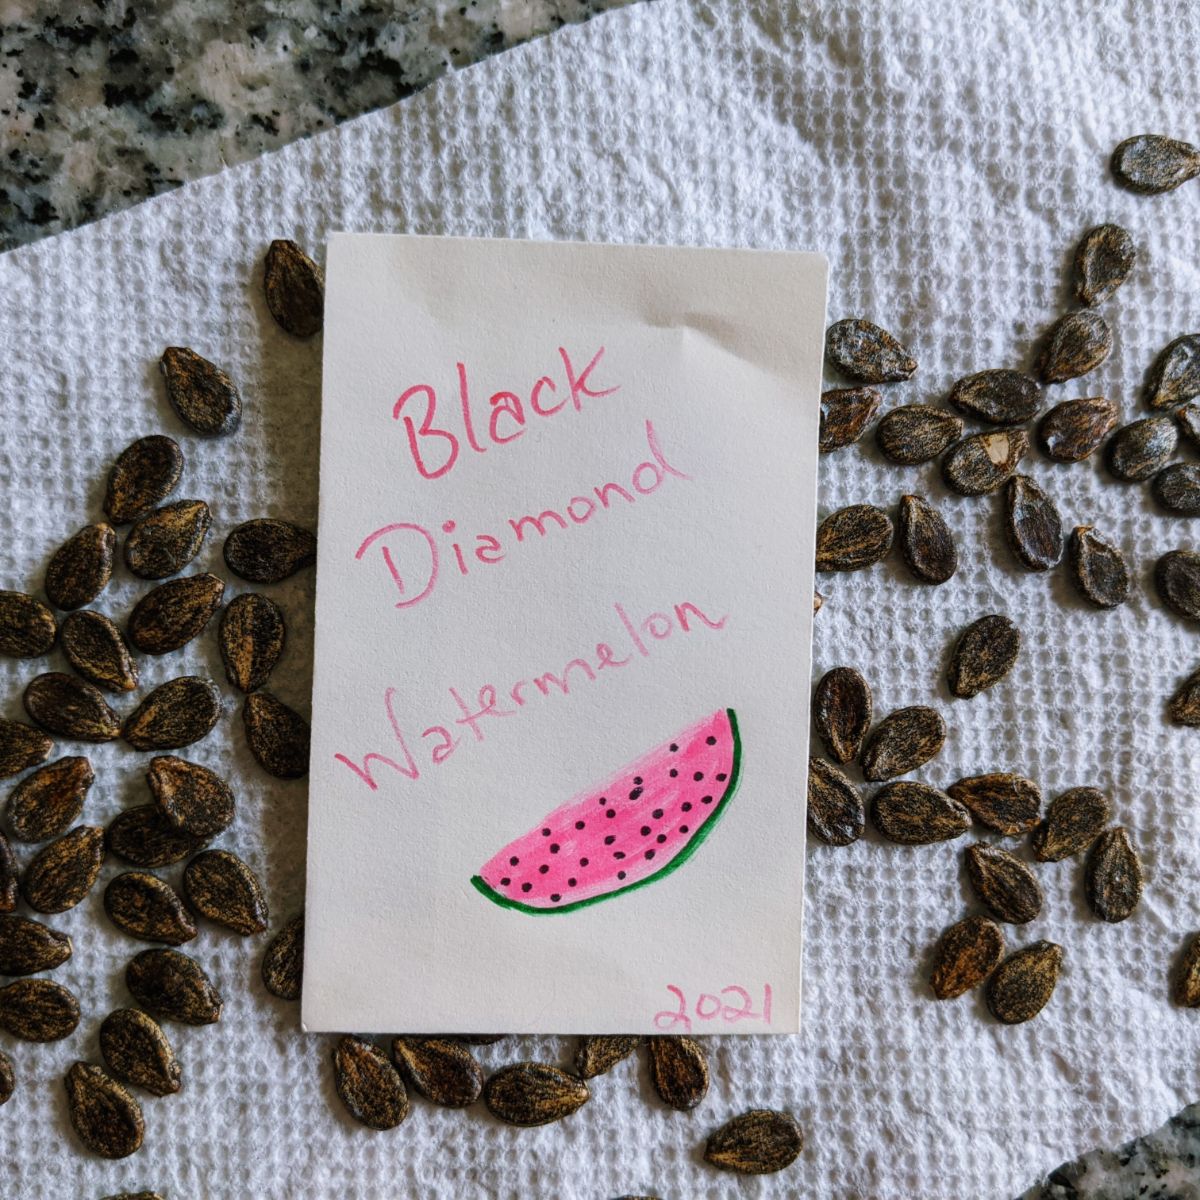 Black
Diamond
Watermelon
2021